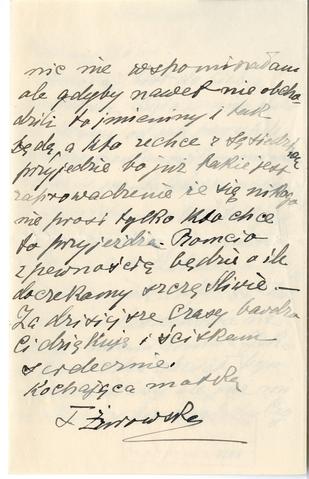 nic nie wspominałam
ale gdyby nawet nie obcho-
dzili to imieniny i tak
będą, a kto zechce z sąsiedztwa
przyjedzie bo już takie jest
zaprowadzenie że się nikogo
nie prosi tylko kto chce
to przyjeżdża. Romcio
z pewnością będzie o ile
doczekamy szczęśliwie –
Za dzisiejsze czasy bardzo
Ci dziękuję i ściskam
serdecznie.
Kochająca matka
Żurowska